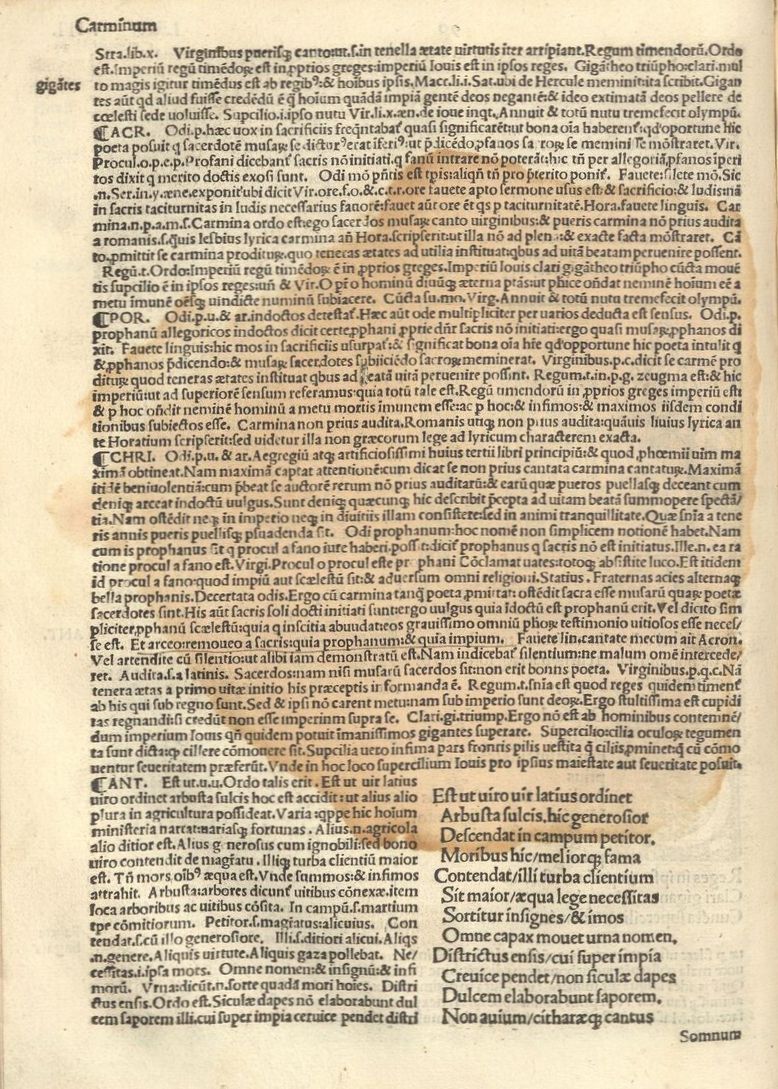 Carminum
Stra.lib.x. Virginibus puerisq́ canto:ut.s.in tenella ætate uirtutis iter arripiant. Regum timendorũ. Ordo
est. Imperiũ regũ timẽdoꝝ est in ꝓprios greges: imperiũ Iouis est in ipsos reges. Gigãtheo triũpho: clari mul
gigãtes
to magis igitur timẽdus est ab regibꝰ: & hoibus ipsis. Macr.li.i.Sat.ubi de Hercule meminit: ita scribit. Gigan
tes aũt qd aliud fuisse credẽdũ ẽ q̃ hoĩum quãdã impiã gentẽ deos negantẽ: & ideo extimatã deos pellere de
cœlesti sede uoluisse. Supcilio.i.ipso nutu Vir.li.x.æn.de ioue inqt. Annuit & totũ nutu tremefecit olympũ.
¶ACR. Odi.p.hæc uox in sacrificiis freq̃ntabat᷑ quasi significarẽtur: bona oĩa haberent᷑: qd oportune hic
poeta posuit q sacerdotẽ musaꝝ se
Procul.o.p.e.p. Profani dicebant᷑ sacris nõ initiati. q fanũ intrare nõ poterãt: hic tñ per allegoriã, ꝓfanos iperi
tos dixit q merito doctis exosi sunt. Odi mõ pñtis est tpis: aliqñ tñ pro p̃terito ponit᷑. Fauete: silete mõ. Sic
.n.Ser.in.y.æne.exponit᷑ ubi dicit Vir.ore.f.o.&.c.t.r.ore fauete apto sermone usus est: & sacrificio: & ludis: nã
in sacris taciturnitas in ludis necessarius fauore: fauet aũt ore ẽt qs p taciturnitatẽ. Hora. fauete linguis. Car
mina.n.p.a.m.s. Carmina ordo est: ego sacerdos musaꝝ canto uirginibus: & pueris carmina nõ prius audita
a romanis.s.q̃uis lesbius lyrica carmina añ Hora.scripserit: ut illa nõ ad plenũ: & exacte facta mõstraret. Cã
to.ꝓmittit se carmina proditurꝝ.quo teneras ætates ad utilia instituat: qbus ad uitã beatam peruenire possent.
Regũ.t. Ordo: Imperiũ regũ timẽdoꝝ ẽ in ꝓprios greges. Imperiũ Iouis clari gigãtheo triũpho cũcta mouẽ
tis supcilio ẽ in ipsos reges: uñ & Vir. O pr̃ o hominũ diuũq æterna ptãs: ut p hĩce oñdat neminẽ hoĩum eẽ a
metu ĩmunẽ oẽsq uindicte numinũ subiacere. Cũcta su.mo. Virg. Annuit & totũ nutu tremefecit olympũ.
¶POR. Odi.p.u.& ar.indoctos detestat᷑. Hæc aũt ode multipliciter per uarios deducta est sensus. Odi.p.
prophanũ allegoricos indoctos dicit certe, pphani ꝓprie dñr̃ sacris nõ initiati: ergo quasi musaꝝ, pphanos di
xit. Fauete linguis: hic mos in sacrificiis usurpat᷑: & significat bona oĩa hĩe qd oportune hic poeta intulit q
&, pphanos p̃dicendo: & musaꝝ sacerdotes subiiciẽdo sacroꝝ meminerat. Virginibus.p.c.dicit se carmẽ pro
diturꝝ quod teneras ætates instituat qbus ad beatã uitã peruenire possint. Regum.t.in.p.g.zeugma est: & hic
imperiũ: ut ad superiorẽ sensum referamus: quia totũ tale est. Regũ timendorũ in ꝓprios greges imperiũ est:
& p hoc oñdit neminẽ hominũ a metu mortis imunem esse: ac p hoc: & infimos: & maximos iisdem condi
tionibus subiectos esse. Carmina non prius audita. Romanis utiq non prius audita: quãuis liuius lyrica an
te Horatium scripserit: sed uidetur illa non græcorum lege ad lyricum characterem exacta.
¶CHRI. Odi.p.u.& ar. Aegregiũ atq artificiosissimi huius tertii libri principiũ: & quod, phœmii uim ma
ximã obtineat. Nam maximã captat attentionẽ: cum dicat se non prius cantata carmina cantaturꝝ. Maximã
itidẽ beniuolentiã: cum p̃beat se auctorẽ rerum nõ prius auditarũ: & earũ quæ pueros puellasq deceant cum
deniq arceat indoctũ uulgus. Sunt deniq quæcunq hic describit p̃cepta ad uitam beatã summopere spectã/
tia. Nam ostẽdit neq in imperio neq in diuitiis illam consistere: sed in animi tranquillitate. Quæ sñia a tene
ris annis pueris puellisq psuadenda sit. Odi prophanum: hoc nomẽ non simplicem notionẽ habet. Nam
cum is prophanus sit q procul a fano iure haberi possit: dicit᷑ prophanus q sacris nõ est initiatus. Ille.n.ea ra
tione procul a fano est. Virgi. Procul o procul este prophani Cõclamat uates: totoq absistite luco. Est itidem
id procul a fano: quod impiũ aut scælestũ sit: & aduersum omni religioni. Statius. Fraternas acies alternaq
bella prophanis. Decertata odis. Ergo cũ carmina tanq poeta, pmittat: ostẽdit sacra esse musarũ quaꝝ poetæ
sacerdotes sint. His aũt sacris soli docti initiati sunt: ergo uulgus quia ĩdoctũ est prophanũ erit. Vel dicito sim
pliciter, pphanũ scælestũ: quia q inscitia abuudat: eos grauissimo omniũ phoꝝ testimonio uitiosos esse neces/
se est. Et arceo: remoueo a sacris: quia prophanum: & quia impium. Fauete lin.cantate mecum ait Acron.
Vel artendite cũ silentio: ut alibi iam demonstratũ est. Nam indicebat᷑ silentium: ne malum omẽ intercede/
ret. Audita.s.a latinis. Sacerdos: nam nisi musarũ sacerdos sit: non erit bonns poeta. Virginibus.p.q.c. Nã
tenera ætas a primo uitæ initio his præceptis informanda ẽ. Regum.t.sñia est quod reges quidem timent᷑
ab his qui sub regno sunt. Sed & ipsi nõ carent metu: nam sub imperio sunt deoꝝ. Ergo stultissima est cupidi
tas regnandi: si credũt non esse imperinm supra se. Clari.gi.triump. Ergo nõ est ab hominibus contemnẽ/
dum imperium Iouis qñ quidem potuit ĩmanissimos gigantes superare. Supercilio: cilia oculoꝝ tegumen
ta sunt dicta: q cillere cõmouere sit. Supcilia uero infima pars frontis pilis uestita q ciliis, pminet: q cũ cõmo
uentur seueritatem præferũt. Vnde in hoc loco supercilium Iouis pro ipsius maiestate aut seueritate posuit.
¶ANT. Est ut.u.u. Ordo talis erit. Est ut uir latius
uiro ordinet arbusta sulcis hoc est accidit: ut alius alio
plura in agricultura possideat. Varia: qppe hic hoĩum
ministeria narrat: uariasq fortunas. Alius.n.agricola
alio ditior est. Alius generosus cum ignobili: sed bono
uiro contendit de magr̃atu. Illiq turba clientiũ maior
est. Tñ mors oĩbꝰ æqua est. Vnde summos: & infimos
attrahit. Arbusta: arbores dicunt᷑ uitibus cõnexæ.item
loca arboribus ac uitibus cõsita. In campũ.s.martium
tpe cõmitiorum. Petitor.s.magr̃atus: alicuius. Con
tendat.s.cũ illo generosiore. Illi.s.ditiori alicui. Aliqs
.n.genere. Aliquis uirtute. Aliquis gaza pollebat. Ne/
cessitas.i.ipsa mors. Omne nomen: & insignũ: & infi
morũ. Vrna: dicũt.n.sorte quadã mori hoĩes. Distri
ctus ensis. Ordo est. Siculæ dapes nõ elaborabunt dul
cem saporem illi. cui super impia ceruice pendet distri
Est ut uiro uir latius ordinet
Arbusta sulcis, hic generosior
Descendat in campum petitor,
Moribus hic/meliorq fama
Contendat/illi turba clientium
Sit maior/æqua lege necessitas
Sortitur insignes/& imos
Omne capax mouet urna nomen,
Districtus ensis/cui super impia
Creuice pendet/non siculæ dapes
Dulcem elaborabunt saporem,
Non auium/citharæq cantus
Somnum